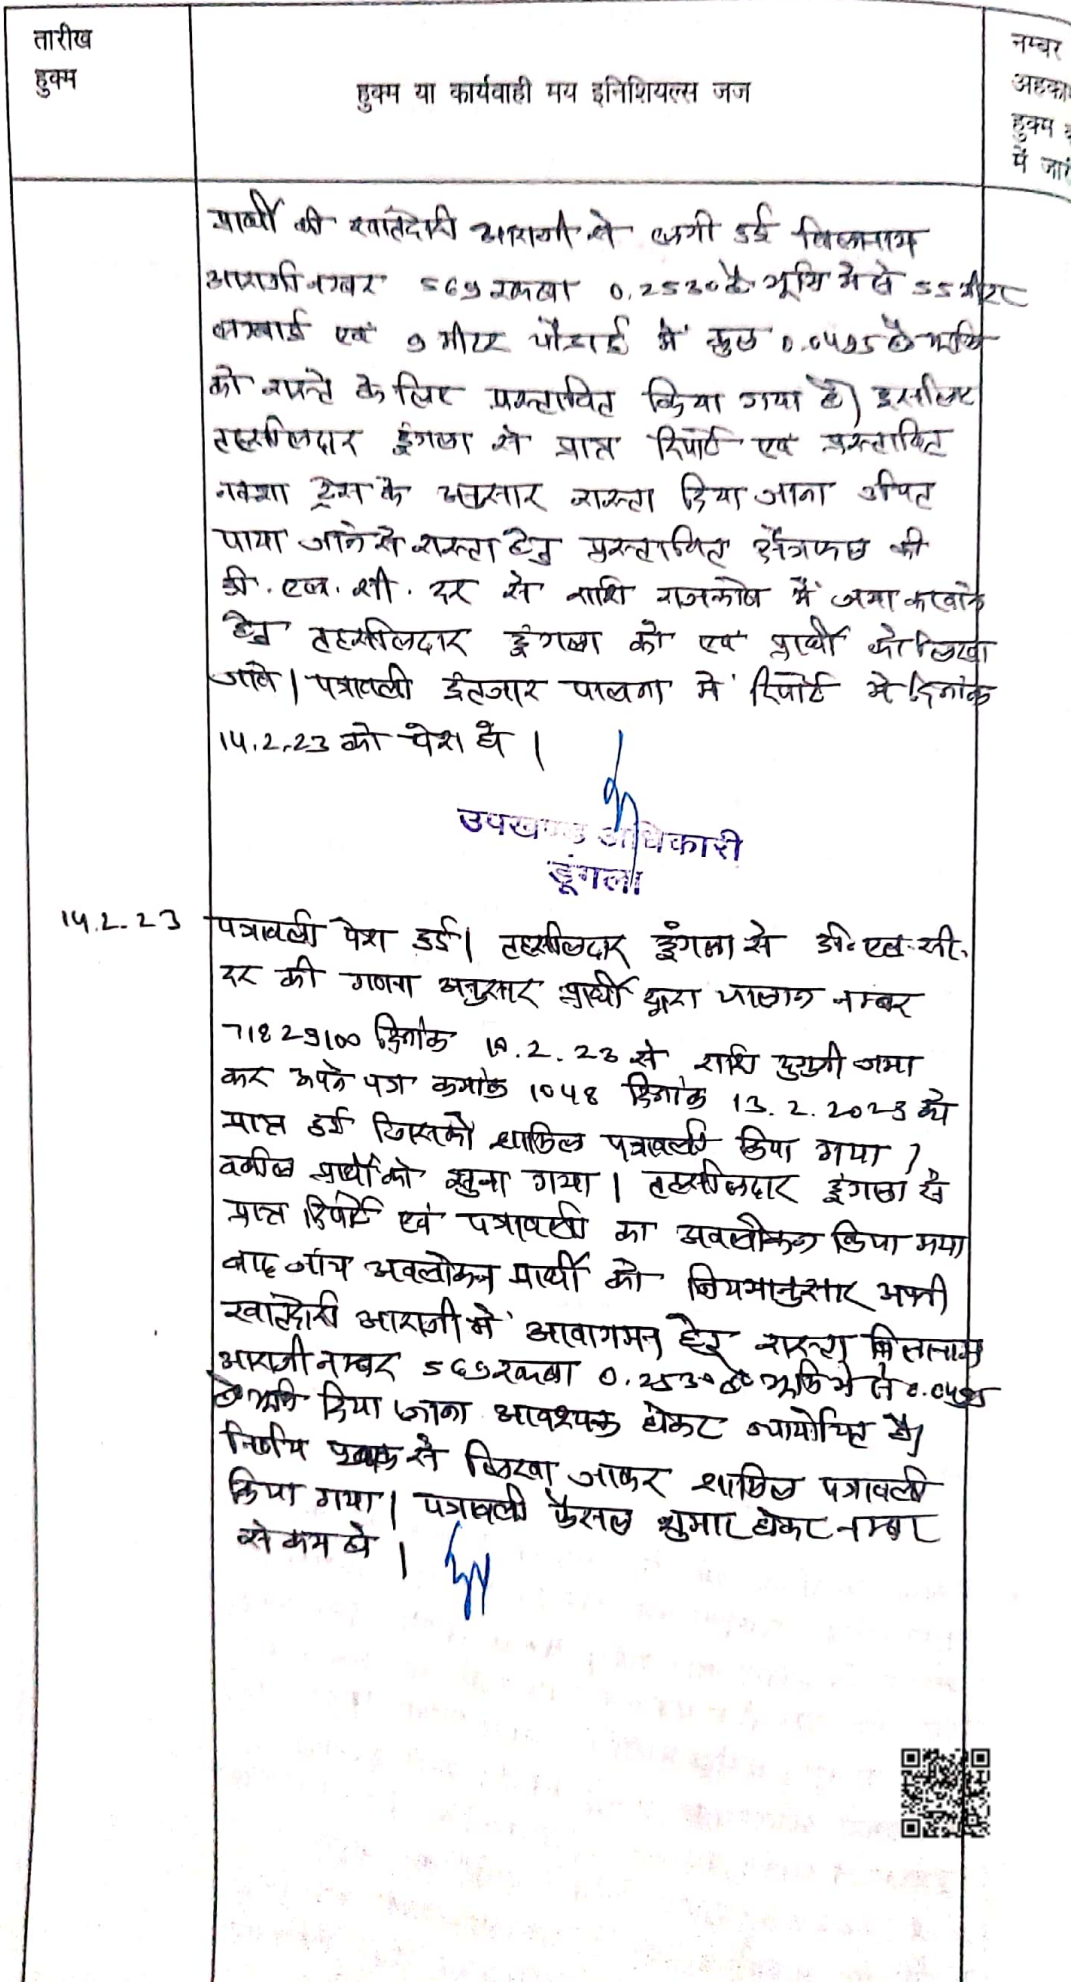 तारीख
हुक्म
हुक्म या कार्यवाही मय इनिशियल्स जज
नम्बर
अहका
हुक्म
में जारी
प्रार्थी की खातेदारी आराजी से लगी हुई बिलानाम
आराजी नम्बर 569 रकबा 0.2530 है. भूमि मे से 55 मीटर
लम्बाई एवं 9 मीटर चौडाई मे कुल 0.0495 है भूमि
को रास्ते के लिए प्रस्तावित किया गया है। इसलिए
तहसीलदार डूंगला से प्राप्त रिपोर्ट एवं प्रस्तावित
नक्शा ट्रेस के अनुसार रास्ता दिया जाना उचित
पाया जाने से रास्ता हेतु प्रस्तावित क्षेत्रफल की
डी. एल. सी. दर से राशि राजकोष मे जमा करवाने
हेतु तहसीलदार डूंगला को एवं प्रार्थी को लिखा
जावे। पत्रावली इंतजार पालना मे रिपोर्ट मे दिनांक
14.2.23 को पेश हो।
उपखण्ड अधिकारी
डूंगला
14.2.23 पत्रावली पेश हुई। तहसीलदार डूंगला से डी.एल.सी.
दर की गणना अनुसार प्रार्थी द्वारा चालान नम्बर
71829100 दिनांक .2.23 से राशि दुगुनी जमा
कर अपने पत्र क्रमांक 1048 दिनांक 13.2.2023 को
प्राप्त हुई जिसको शामिल पत्रावली किया गया।
वकील प्रार्थी को सुना गया। तहसीलदार डूंगला से
प्राप्त रिपोर्ट एवं पत्रावली का अवलोकन किया गया
बाद जांच अवलोकन प्रार्थी को नियमानुसार अपनी
खातेदारी आराजी मे आवागमन हेतु रास्ता बिलानाम
आराजी नम्बर 569 रकबा 0.2530 है भूमि मे से 0.0495
है भूमि दिया जाना आवश्यक होकर न्यायोचित है।
निर्णय पृथक से लिखा जाकर शामिल पत्रावली
किया गया। पत्रावली फैसल शुमार होकर नम्बर
से कम हो।